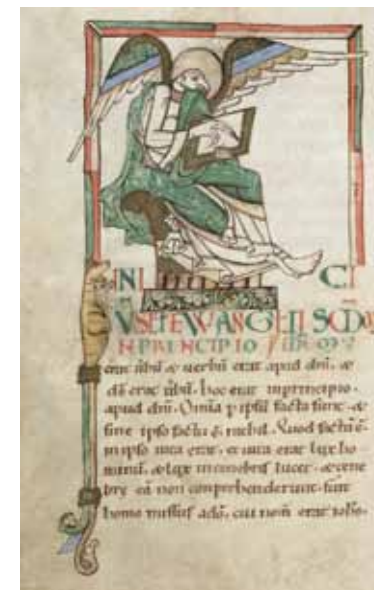 INI CI
EWANGELII SCD̄M
N PRINCIPIO
erat ubū & uerbū erat apud dm̄. &
ds̄ erat ubū. hoc erat inprincipio.
apud dm̄. Omīa p ipsū facta sunt. &
sine ipso factū ē. nichil. Quod factū ē.
in ipso uita erat. et uita erat lux ho
minū. & lux in tenebris lucet. & tene
bre eā non conprehenderunt. fuit
homo missus ado. cui nom̄ erat iohs.